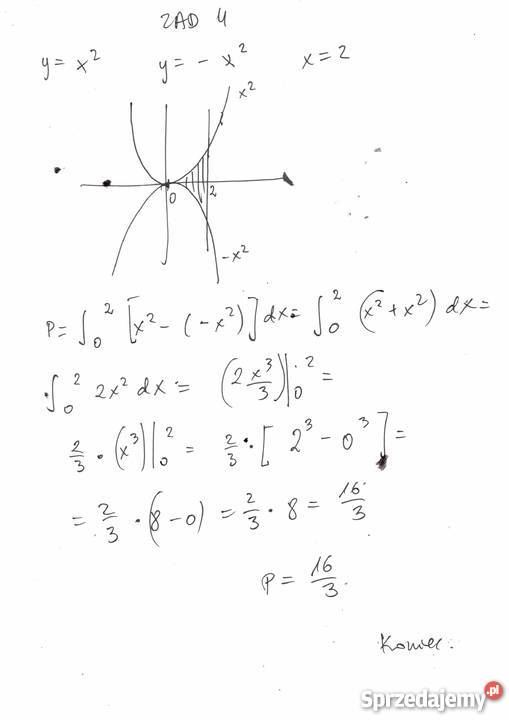 ZAD 4
y = x² y = - x² x = 2
x²
0 2
-x²
P = ∫₀² [x² - (-x²)] dx = ∫₀² (x² + x²) dx =
∫₀² 2x² dx = (2 x³/3)|₀² =
2/3 · (x³)|₀² = 2/3 · [2³ - 0³] =
= 2/3 · (8 - 0) = 2/3 · 8 = 16/3
P = 16/3.
Koniec.
Sprzedajemy.pl